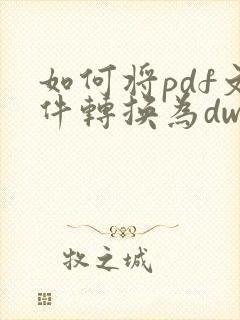 如何将pdf文
件轉換為dw
牧之城